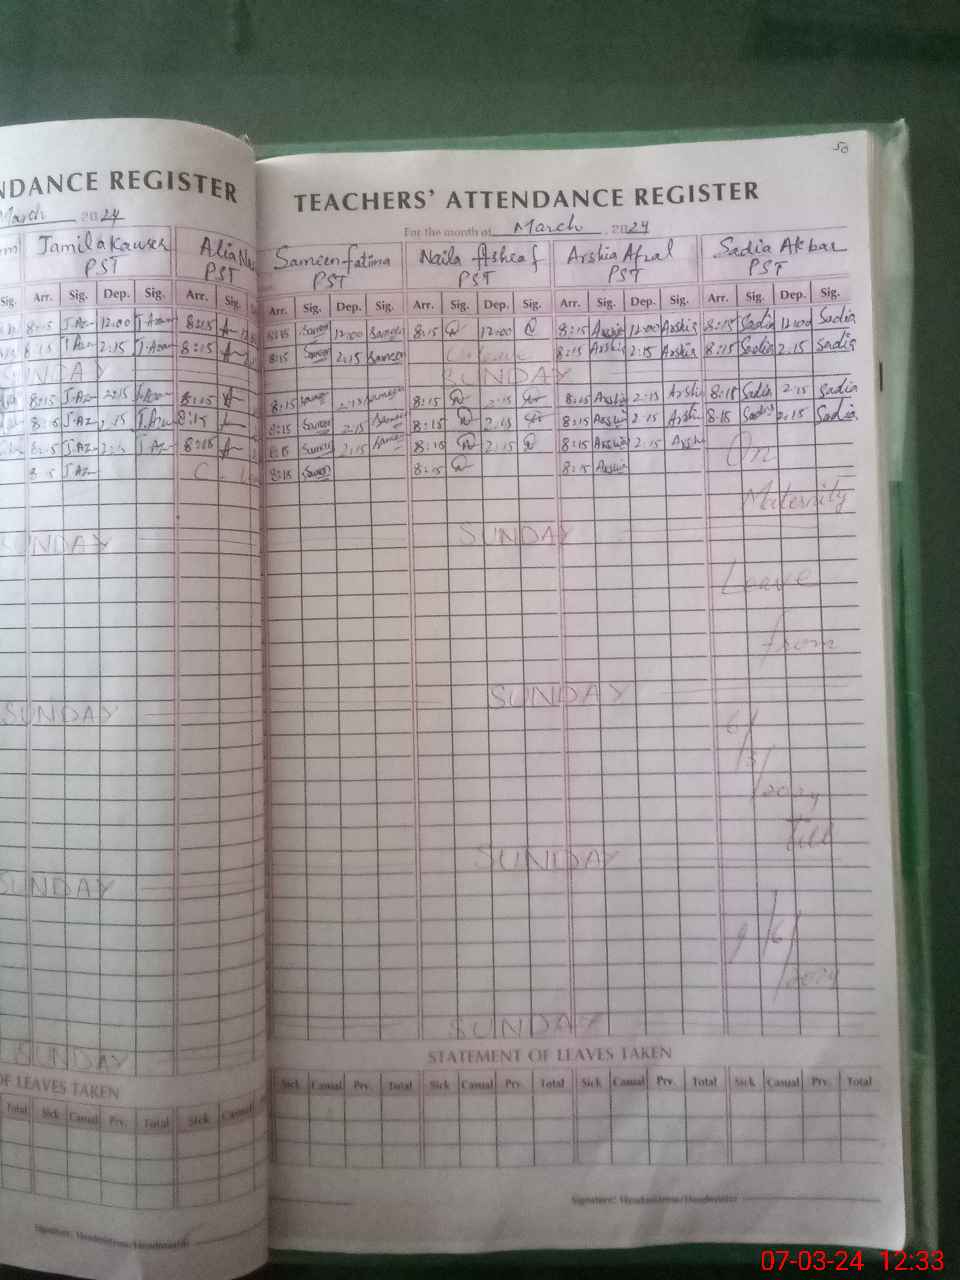 NDANCE REGISTER
March 2024
Jamila Kawser
PST
PST
Sig. Arr. Sig. Dep. Sig. Arr. Sig.
8:15 J.Az 12:00 J.Azam 8:15
8:15 2:15 8:15
SUNDAY
8:15 J.Az 2:15 8:15
8:15 J.Az 2:15 8:15
8:15 J.Az J.Az 8:15
8:15 J.Az
SUNDAY
SUNDAY
SUNDAY
SUNDAY
OF LEAVES TAKEN
Total Sick Casual Prv. Total Sick Casual
Signature: Headmistress/Headmaster
50
TEACHERS' ATTENDANCE REGISTER
For the month of March 2024
Sameen fatima Naila Ashraf Arshia Afzal Sadia Akbar
PST PST PST PST
Arr. Sig. Dep. Sig. Arr. Sig. Dep. Sig. Arr. Sig. Dep. Sig. Arr. Sig. Dep. Sig.
8:15 Sameen 12:00 Sameen 8:15 12:00 8:15 Arshia 12:00 Arshia 8:15 Sadia 12:00 Sadia
8:15 Sameen 2:15 Sameen 8:15 Arshia 2:15 Arshia 8:15 Sadia 2:15 Sadia
SUNDAY
8:15 Sameen 2:15 Sameen 8:15 2:15 8:15 Arshia 2:15 Arshia 8:15 Sadia 2:15 Sadia
8:15 Sameen 2:15 Sameen 8:15 2:15 8:15 Arshia 2:15 Arshia 8:15 Sadia 2:15 Sadia
8:15 Sameen 2:15 Sameen 8:15 2:15 8:15 Arshia 2:15 Arshia On
8:15 Sameen 8:15 8:15 Arshia
Maternity
SUNDAY
Leave
from
SUNDAY
6/
3/
2024
till
SUNDAY
9/6/
2024
SUNDAY
STATEMENT OF LEAVES TAKEN
Sick Casual Prv. Total Sick Casual Prv. Total Sick Casual Prv. Total Sick Casual Prv. Total
Signature: Headmistress/Headmaster
07-03-24 12:33